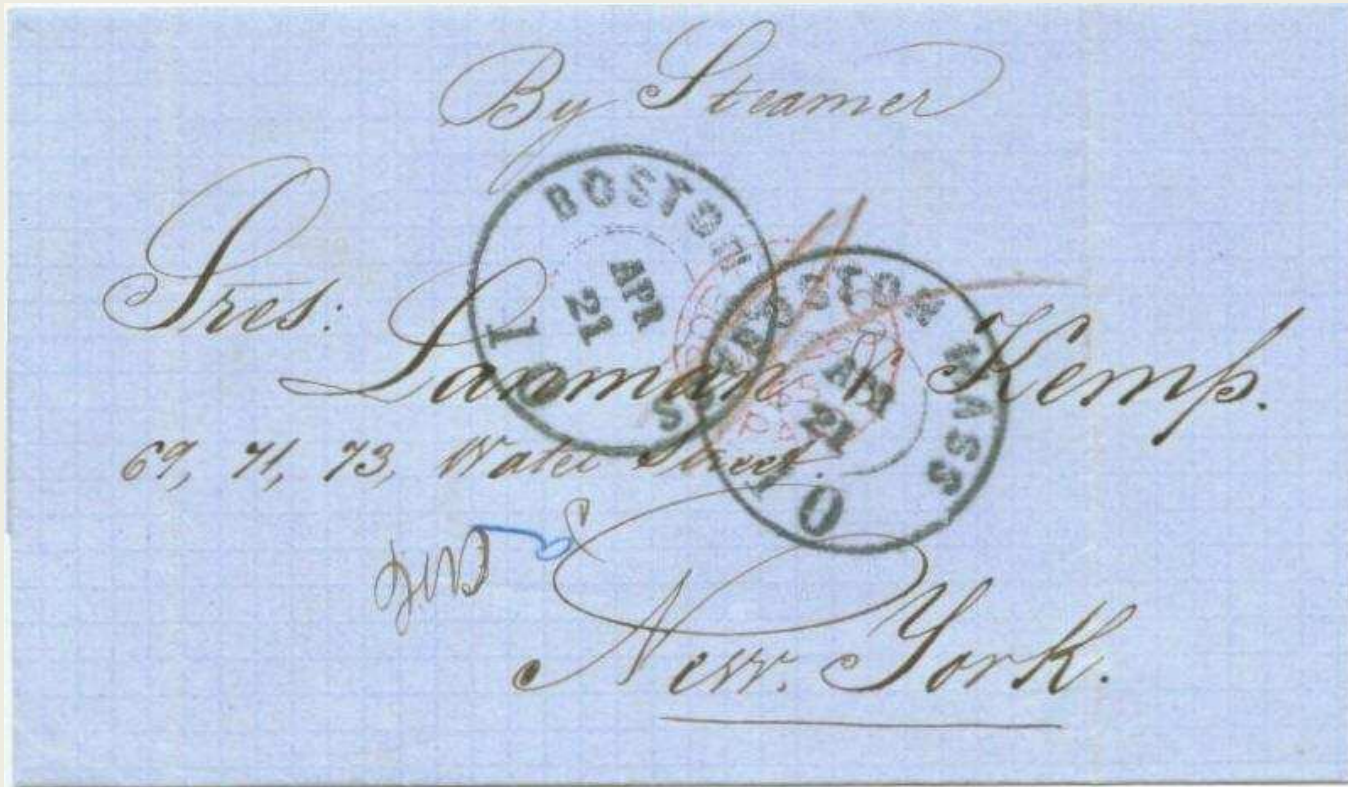 By Steamer
BOSTON
APR
21
10
BOSTON MASS
APR
21
10
Sres:
Lanman & Kemp.
69, 71, 73, Water Street.
New. York.